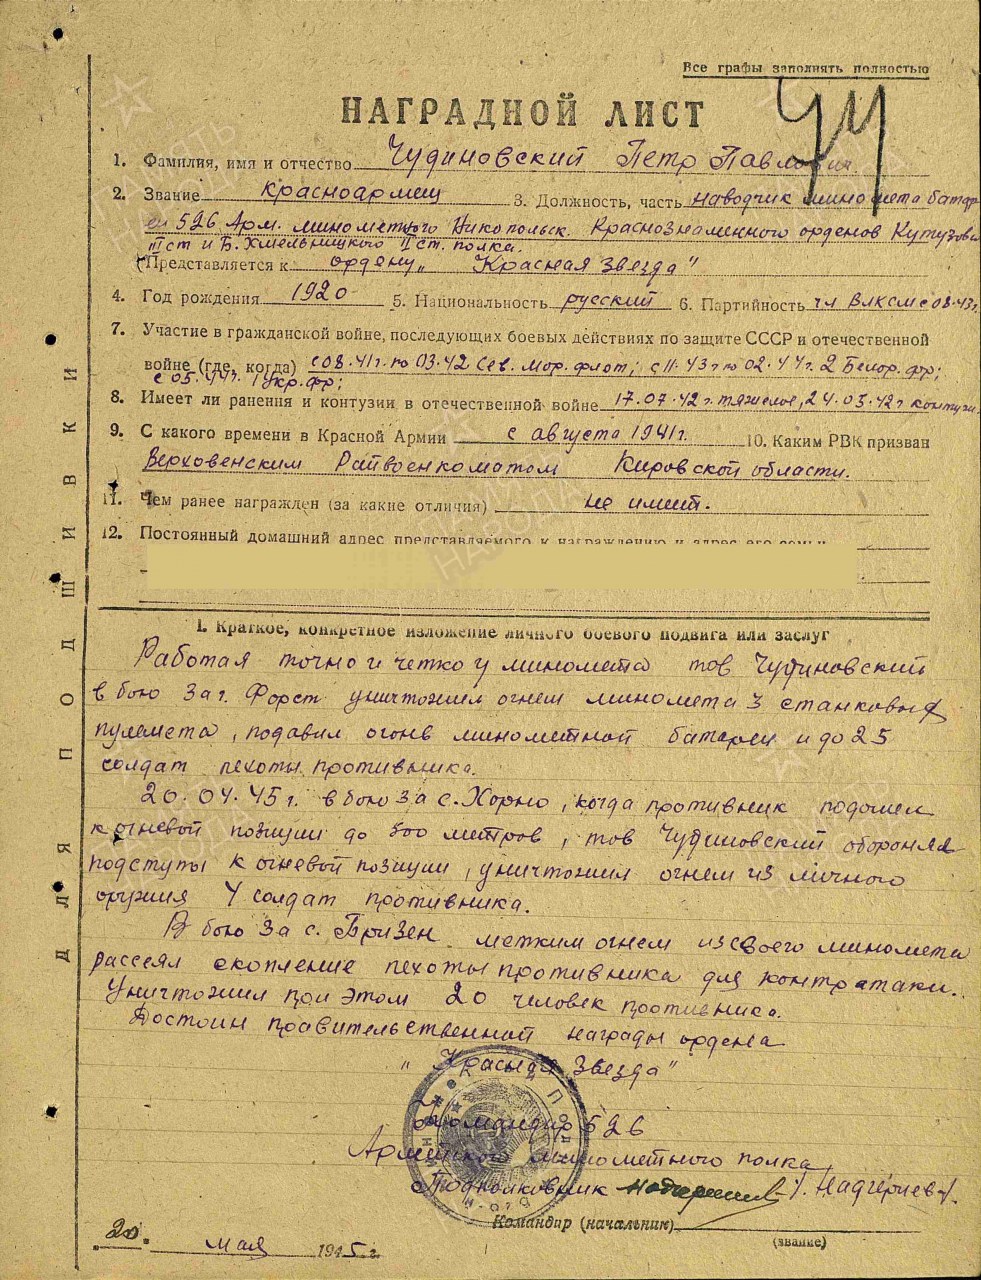 Все графы заполнять полностью
НАГРАДНОЙ ЛИСТ
1. Фамилия, имя и отчество Чудиновский Петр Павлович
2. Звание красноармеец 3. Должность, часть наводчик миномета батар
еи 526 Арм. минометного Никопольск. Краснознаменного орденов Кутузова
IIIст и Б. Хмельницкого IIст. полка.
Представляется к ордену „Красная звезда"
4. Год рождения 1920 5. Национальность русский 6. Партийность чл ВЛКСМ с 08.43г.
7. Участие в гражданской войне, последующих боевых действиях по защите СССР и отечественной
войне (где, когда) с 08.41г. по 03.42 Сев. мор. флот; с 11.43г по 02.44г. 2 Белор. фр;
с 05.44г. 1 Укр. фр;
8. Имеет ли ранения и контузии в отечественной войне 17.07.42г. тяжелое, 24.03.42г контузи.
9. С какого времени в Красной Армии с августа 1941г. 10. Каким РВК призван
Верховенским Райвоенкоматом Кировской области.
11. Чем ранее награжден (за какие отличия) не имеет.
12. Постоянный домашний адрес представляемого к награждению и адрес его семьи
I. Краткое, конкретное изложение личного боевого подвига или заслуг
Работая точно и четко у миномета тов Чудиновский
в бою за г. Форст уничтожил огнем миномета 3 станковых
пулемета, подавил огонь минометной батареи и до 25
солдат пехоты противника.
20.04.45г. в бою за с. Хорно, когда противник подошел
к огневой позиции до 500 метров, тов Чудиновский обороняя
подступы к огневой позиции, уничтожил огнем из личного
оружия 4 солдат противника.
В бою за с. Бризен метким огнем из своего миномета
рассеял скопление пехоты противника для контратаки.
Уничтожил при этом 20 человек противника.
Достоин правительственной награды ордена
„Красная Звезда"
Командир 526
Армейского минометного полка
Подполковник /Надгериев/.
Командир (начальник)
(звание)
20. мая 1945г.
ДЛЯ ПОДШИВКИ
ПАМЯТЬ НАРОДА